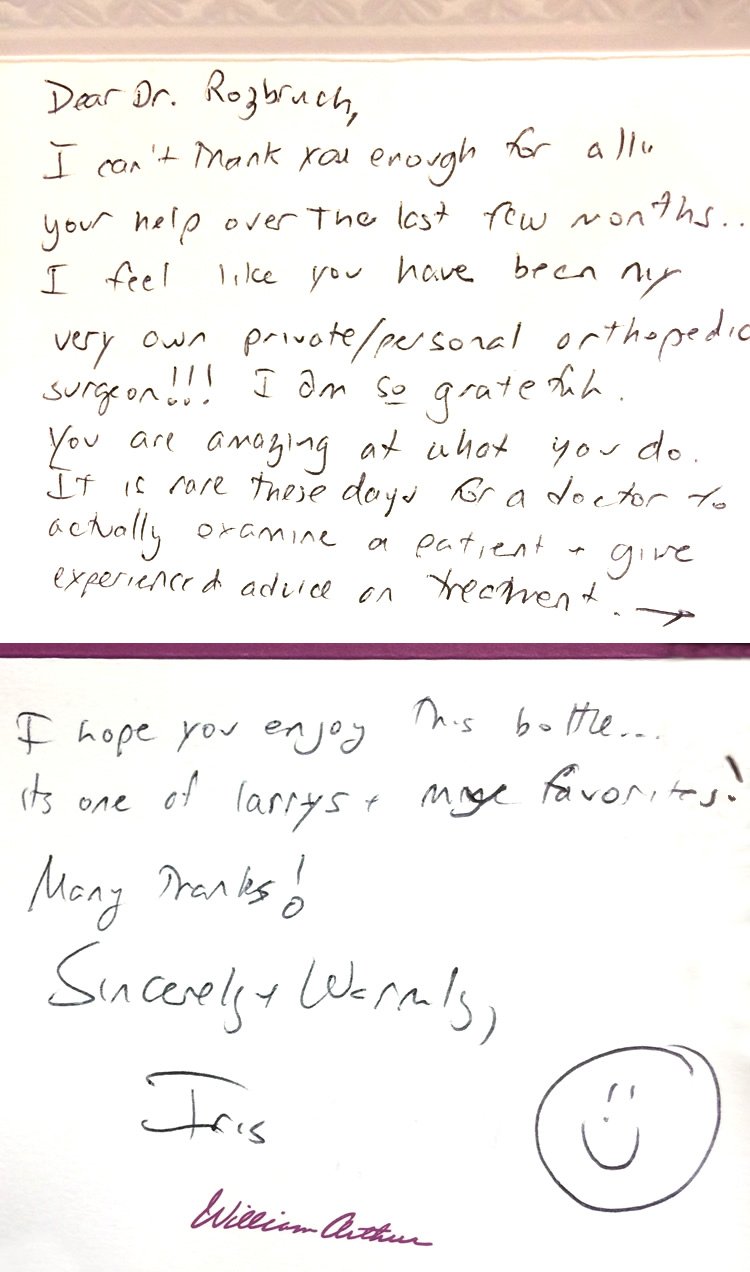 Dear Dr. Rozbruch,
I can't thank you enough for all
your help over the last few months..
I feel like you have been my
very own private/personal orthopedic
surgeon!!! I am so grateful.
You are amazing at what you do.
It is rare these days for a doctor to
actually examine a patient + give
experienced advice on treatment. →
I hope you enjoy this bottle...
its one of larrys + mye favorites!
Many Thanks!
Sincerely + Warmly,
Iris
William Arthur